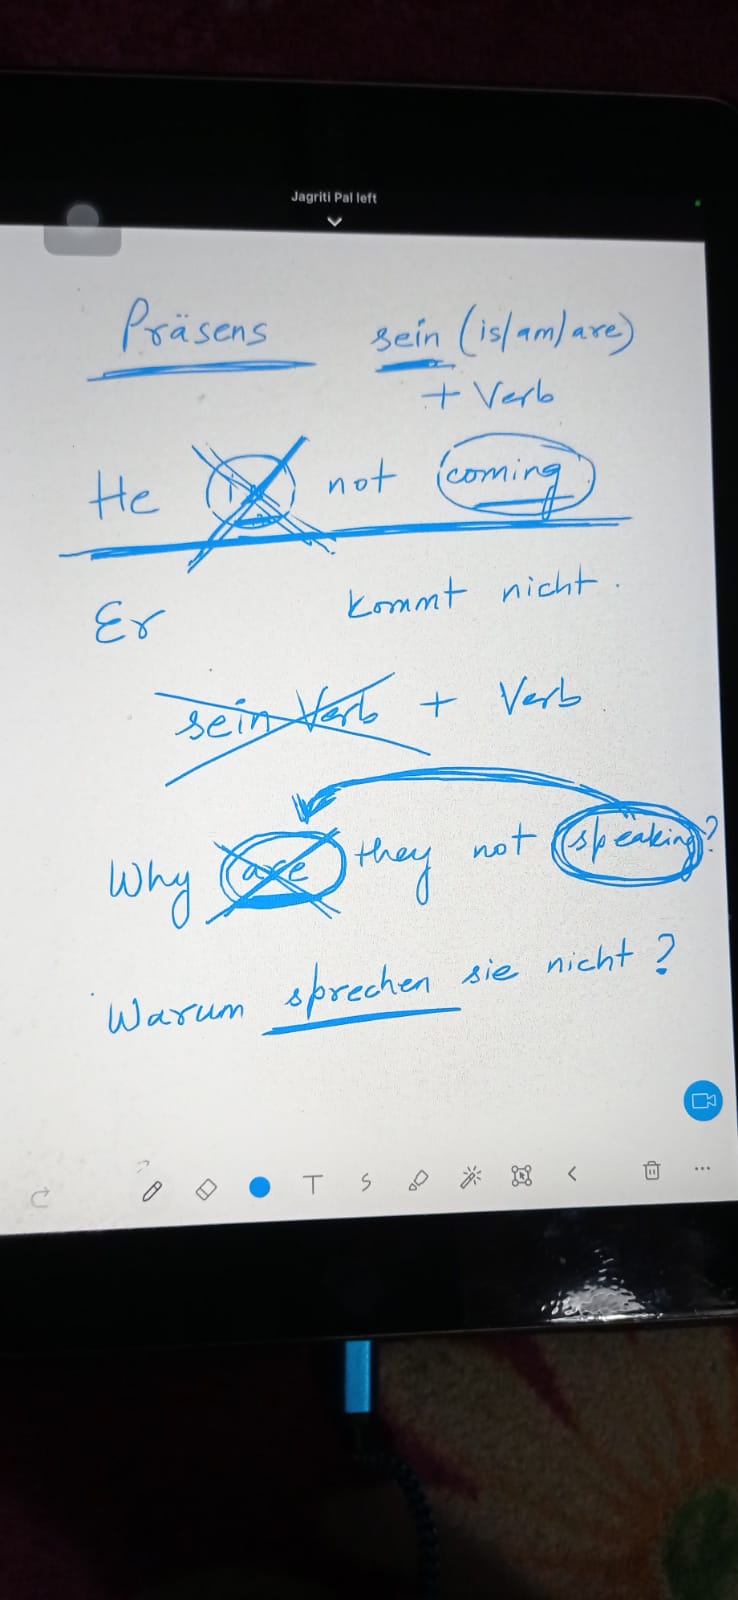 Jagriti Pal left
Präsens sein (is/am/are)
+ Verb
He is not coming
Er kommt nicht.
sein Verb + Verb
Why are they not speaking?
Warum sprechen sie nicht?
T S